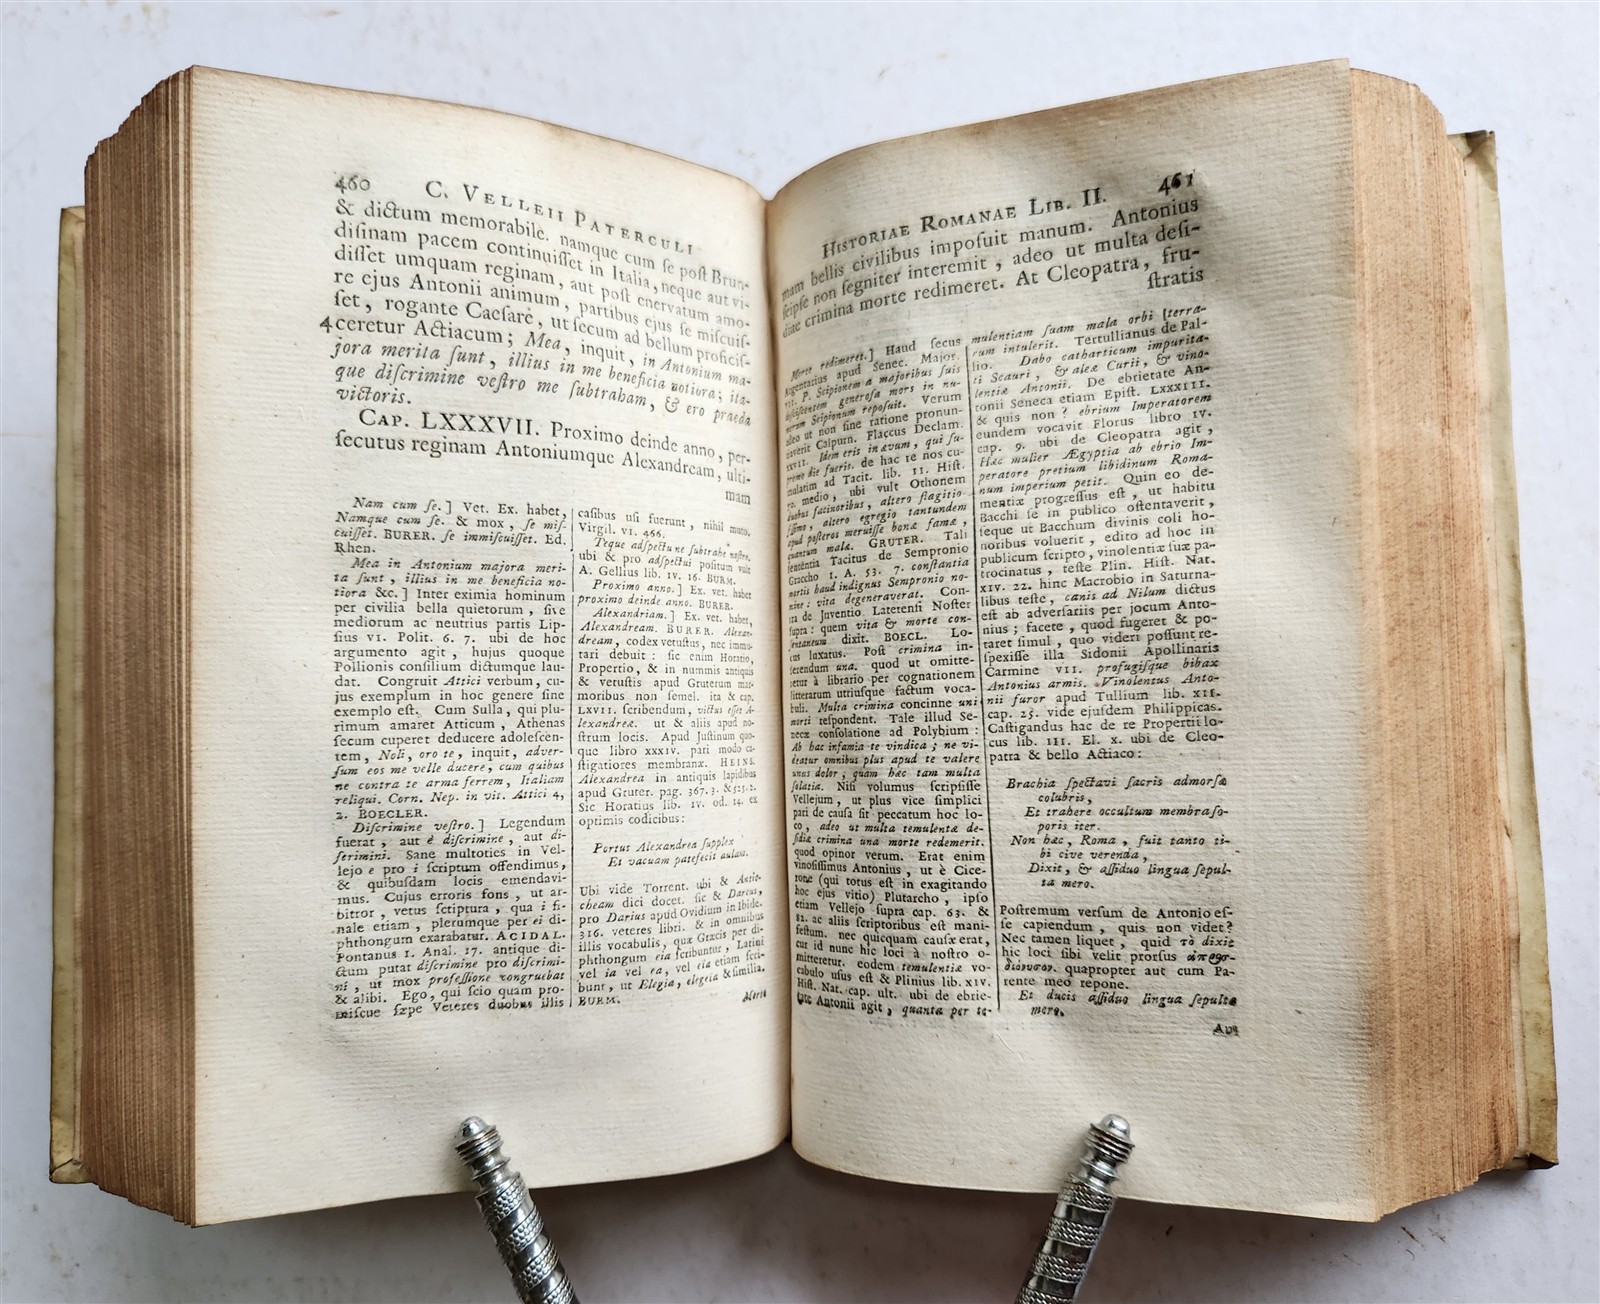 460 C. VELLEII PATERCULI
& dictum memorabile. namque cum ſe poſt Brun-
diſinam pacem continuiſſet in Italia, neque aut vi-
diſſet umquam reginam, aut poſt enervatum amo-
re ejus Antonii animum, partibus ejus ſe miſcuiſ-
ſet, rogante Caeſare, ut ſecum ad bellum proficiſ-
4 ceretur Actiacum; Mea, inquit, in Antonium ma-
jora merita ſunt, illius in me beneficia notiora; ita-
que diſcrimine veſtro me ſubtraham, & ero praeda
victoris.
CAP. LXXXVII. Proximo deinde anno, per-
ſecutus reginam Antoniumque Alexandream, ulti-
mam
Nam cum ſe.] Vet. Ex. habet,
Namque cum ſe. & mox, ſe miſ-
cuiſſet. BURER. ſe immiſcuiſſet. Ed.
Rhen.
Mea in Antonium majora meri-
ta ſunt, illius in me beneficia no-
tiora &c.] Inter eximia hominum
per civilia bella quietorum, ſive
mediorum ac neutrius partis Lip-
ſius VI. Polit. 6. 7. ubi de hoc
argumento agit, hujus quoque
Pollionis conſilium dictumque lau-
dat. Congruit Attici verbum, cu-
jus exemplum in hoc genere ſine
exemplo eſt. Cum Sulla, qui plu-
rimum amaret Atticum, Athenas
ſecum cuperet deducere adoleſcen-
tem, Noli, oro te, inquit, adver-
ſum eos me velle ducere, cum quibus
ne contra te arma ferrem, Italiam
reliqui. Corn. Nep. in vit. Attici 4,
2. BOECLER.
Diſcrimine veſtro.] Legendum
fuerat, aut è diſcrimine, aut di-
ſcrimini. Sane multoties in Vel-
lejo e pro i ſcriptum offendimus,
& quibuſdam locis emendavi-
mus. Cujus erroris fons, ut ar-
bitror, vetus ſcriptura, qua i fi-
nale etiam, plerumque per ei di-
phthongum exarabatur. ACIDAL.
Pontanus 1. Anal. 17. antique di-
ctum putat diſcrimine pro diſcrimi-
ni, ut mox profeſſione congruebat
& alibi. Ego, qui ſcio quam pro-
miſcue ſæpe Veteres duobus illis
caſibus uſi fuerunt, nihil muto.
Virgil. VI. 466.
Teque adſpectu ne ſubtrahe noſtro.
ubi & pro adſpectui poſitum vult
A. Gellius lib. IV. 16. BURM.
Proximo anno.] Ex. vet. habet
proximo deinde anno. BURER.
Alexandriam.] Ex. vet. habet,
Alexandream. BURER. Alexan-
dream, codex vetuſtus, nec immu-
tari debuit: ſic enim Horatio,
Propertio, & in nummis antiquis
& vetuſtis apud Gruterum mar-
moribus non ſemel. ita & cap.
LXVII. ſcribendum, victus eſſet A-
lexandreæ. ut & aliis apud no-
ſtrum locis. Apud Juſtinum quo-
que libro XXXIV. pari modo ca-
ſtigatiores membranæ. HEINS.
Alexandrea in antiquis lapidibus
apud Gruter. pag. 367. 3. & 525. 2.
Sic Horatius lib. IV. od. 14. ex
optimis codicibus:
Portus Alexandrea ſupplex
Et vacuam patefecit aulam.
Ubi vide Torrent. ubi & Antio-
cheam dici docet. ſic & Dareus,
pro Darius apud Ovidium in Ibide.
316. veteres libri. & in omnibus
illis vocabulis, quæ Græcis per di-
phthongum eia ſcribuntur, Latini
vel ia vel ea, vel eia etiam ſcri-
bunt, ut Elegia, elegeia & ſimilia.
BURM.
Morte
HISTORIAE ROMANAE LIB. II. 461
mam bellis civilibus impoſuit manum. Antonius
ſeipſe non ſegniter interemit, adeo ut multa deſi-
diae crimina morte redimeret. At Cleopatra, fru-
ſtratis
Morte redimeret.] Haud ſecus
Argentarius apud Senec. Major.
VII. P. Scipionem a majoribus ſuis
deſciſcentem generoſa mors in nu-
merum Scipionum repoſuit. Verum
adeo ut non ſine ratione pronun-
tiaverit Calpurn. Flaccus Declam.
XXVII. Idem eris in ævum, qui ſu-
premo die fueris. de hac re nos cu-
mulatim ad Tacit. lib. II. Hiſt.
medio, ubi vult Othonem
duobus facinoribus, altero flagitio-
ſiſſimo, altero egregio tantundem
apud poſteros meruiſſe bonæ famæ,
quantum malæ. GRUTER. Tali
ſententia Tacitus de Sempronio
Graccho 1. A. 53. 7. conſtantia
mortis haud indignus Sempronio no-
mine: vita degeneraverat. Con-
tra de Juventio Laterenſi Noſter
ſupra: quem vita & morte con-
ſentaneum dixit. BOECL. Lo-
cus luxatus. Poſt crimina in-
ſerendum una. quod ut omitte-
retur à librario per cognationem
litterarum utriuſque factum voca-
buli. Multa crimina concinne uni
morti reſpondent. Tale illud Se-
necæ conſolatione ad Polybium:
Ab hac infamia te vindica; ne vi-
deatur omnibus plus apud te valere
unus dolor, quam hæc tam multa
ſolatia. Niſi volumus ſcripſiſſe
Vellejum, ut plus vice ſimplici
pari de cauſa ſit peccatum hoc lo-
co, adeo ut multa temulentæ de-
ſidiæ crimina una morte redimerit.
quod opinor verum. Erat enim
vinoſiſſimus Antonius, ut è Cice-
rone (qui totus eſt in exagitando
hoc ejus vitio) Plutarcho, ipſo
etiam Vellejo ſupra cap. 63. &
82. ac aliis ſcriptoribus eſt mani-
feſtum. nec quicquam cauſæ erat,
cur id nunc hic loci à noſtro o-
mitteretur. eodem temulentiæ vo-
cabulo uſus eſt & Plinius lib. XIV.
Hiſt. Nat. cap. ult. ubi de ebrie-
tate Antonii agit, quanta per te-
mulentiam ſuam mala orbi [terra-
rum intulerit. Tertullianus de Pal-
lio. Dabo catharticum impurita-
ti Scauri, & aleæ Curii, & vino-
lentiæ Antonii. De ebrietate An-
tonii Seneca etiam Epiſt. LXXXIII.
& quis non? ebrium Imperatorem
eundem vocavit Florus libro IV.
cap. 9. ubi de Cleopatra agit,
Hæc mulier Ægyptia ab ebrio Im-
peratore pretium libidinum Roma-
num imperium petit. Quin eo de-
mentiæ progreſſus eſt, ut habitu
Bacchi ſe in publico oſtentaverit,
ſeque ut Bacchum divinis coli ho-
noribus voluerit, edito ad hoc in
publicum ſcripto, vinolentiæ ſuæ pa-
trocinatus, teſte Plin. Hiſt. Nat.
XIV. 22. hinc Macrobio in Saturna-
libus teſte, canis ad Nilum dictus
eſt ab adverſariis per jocum Anto-
nius; facete, quod fugeret & po-
taret ſimul, quo videri poſſunt re-
ſpexiſſe illa Sidonii Apollinaris
Carmine VII. profugiſque bibax
Antonius armis. Vinolentus Anto-
nii furor apud Tullium lib. XII.
cap. 25. vide ejuſdem Philippicas.
Caſtigandus hac de re Propertii lo-
cus lib. III. El. X. ubi de Cleo-
patra & bello Actiaco:
Brachia ſpectavi ſacris admorſa
colubris,
Et trahere occultum membra ſo-
poris iter.
Non hæc, Roma, fuit tanto ti-
bi cive verenda,
Dixit, & aſſiduo lingua ſepul-
ta mero.
Poſtremum verſum de Antonio eſ-
ſe capiendum, quis non videt?
Nec tamen liquet, quid τὸ dixit
hic loci ſibi velit prorſus ἀπροσ-
διόνυσον. quapropter aut cum Pa-
rente meo repone.
Et ducis aſſiduo lingua ſepulta
mero.
Aut